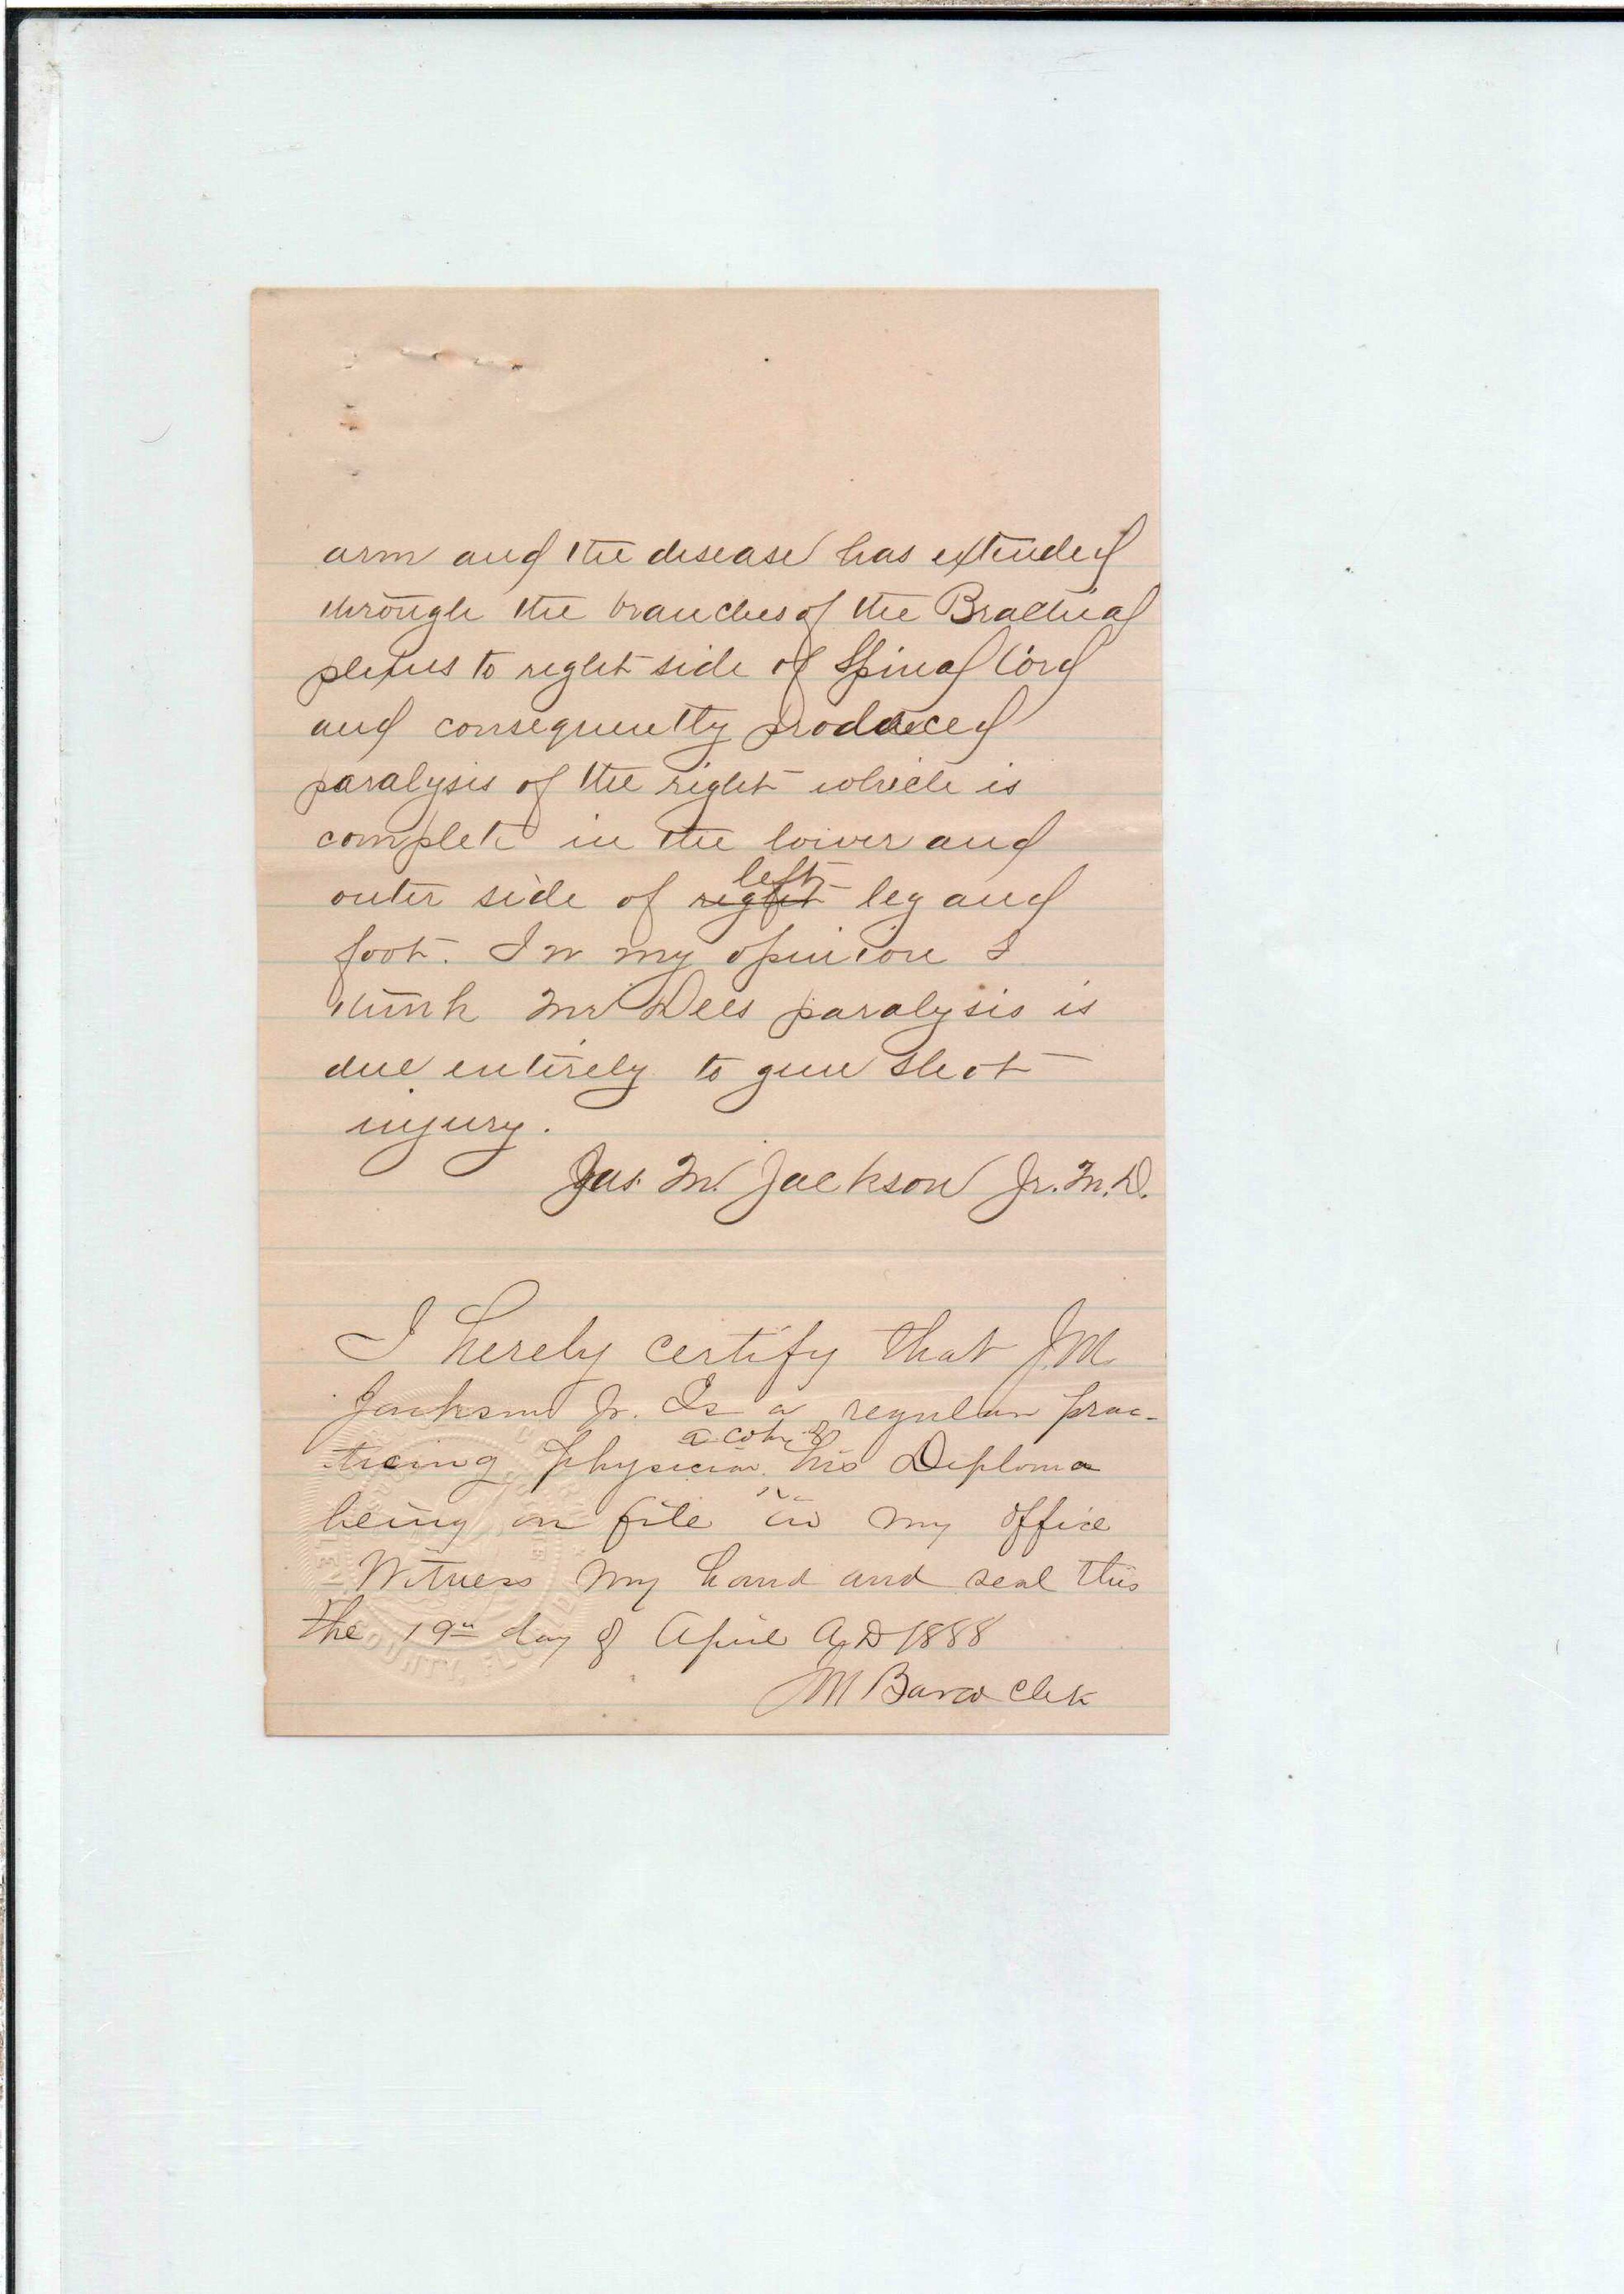 arm and the disease has extended
through the branches of the Brachial
plexus to right side of Spinal Cord
and consequently produced
paralysis of the right which is
complete in the lower and
outer side of right left leg and
foot. In my opinion I
think Mr Dees paralysis is
due entirely to gun shot
injury.
Jas. M. Jackson Jr. M.D.
I hereby certify that J.M.
Jackson Jr. Is a regular prac-
ticing physician. a copy of his Diploma
being on file in my office
Witness my hand and seal this
the 19th day of April A.D 1888
JM Barco Clk
COUNTY, FLORIDA